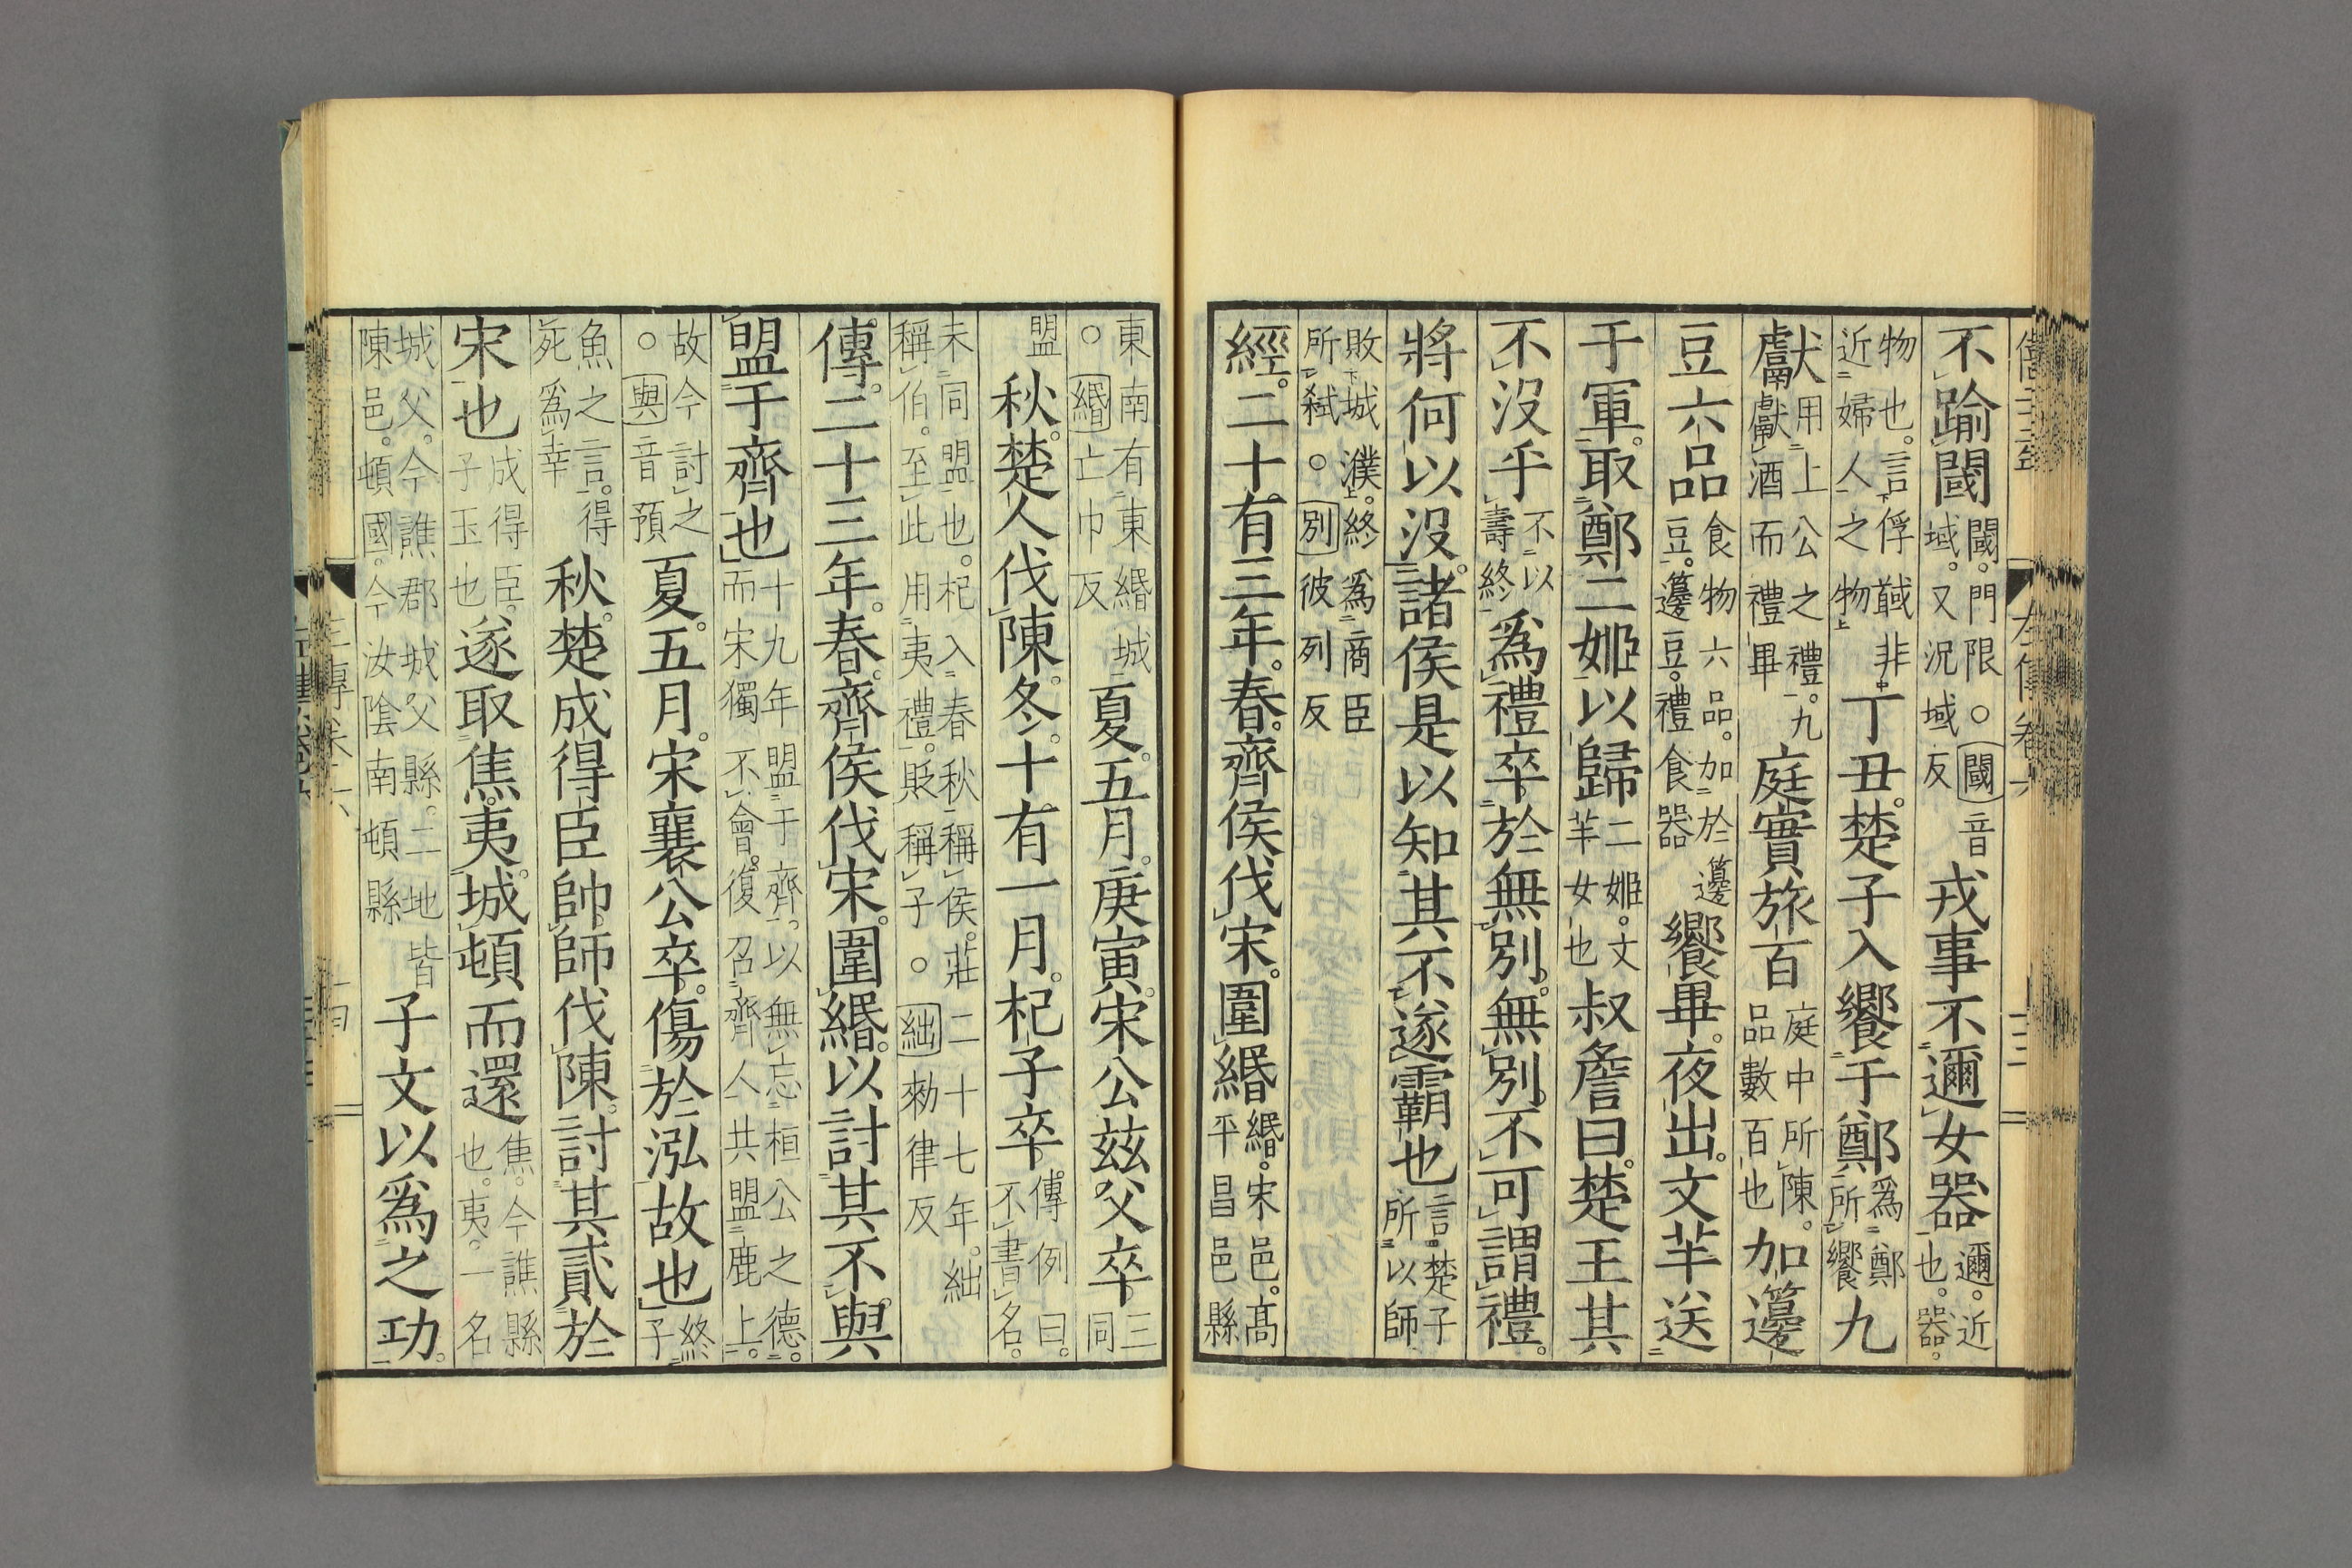 左傳卷六
不踰閾閾。門限。○閾音域。又況域反戎事不邇女器邇。近也。器。
物也。言俘馘非近婦人之物丁丑。楚子入饗于鄭爲鄭所饗九
獻用上公之禮。九獻酒而禮畢庭實旅百庭中所陳。品數百也加籩
豆六品食物六品。加於籩豆。籩豆。禮食器饗畢。夜出。文羋送
于軍。取鄭二姬以歸二姬。文羋女也叔詹曰。楚王其
不沒乎不以壽終爲禮卒於無別。無別。不可謂禮。
將何以沒。諸侯是以知其不遂霸也言楚子所以師
敗城濮。終爲商臣所弒○別彼列反
經。二十有三年。春。齊侯伐宋。圍緡緡。宋邑。高平昌邑縣
東南有東緡城○緡亡巾反夏。五月。庚寅。宋公茲父卒。三同
盟秋。楚人伐陳。冬。十有一月。杞子卒。傳例曰。不書名。
未同盟也。杞入春秋稱侯。莊二十七年。絀稱伯。至此用夷禮。貶稱子○絀勑律反
傳。二十三年。春。齊侯伐宋。圍緡。以討其不與
盟于齊也十九年盟于齊。以無忘桓公之德。而宋獨不會。復召齊人共盟鹿上。
故今討之○與音預夏。五月。宋襄公卒。傷於泓故也終子
魚之言。得死爲幸秋。楚成得臣帥師伐陳。討其貳於
宋也成得臣。子玉也遂取焦。夷。城頓而還焦。今譙縣也。夷。一名
城父。今譙郡城父縣。二地皆陳邑。頓國。今汝陰南頓縣子文以爲之功。